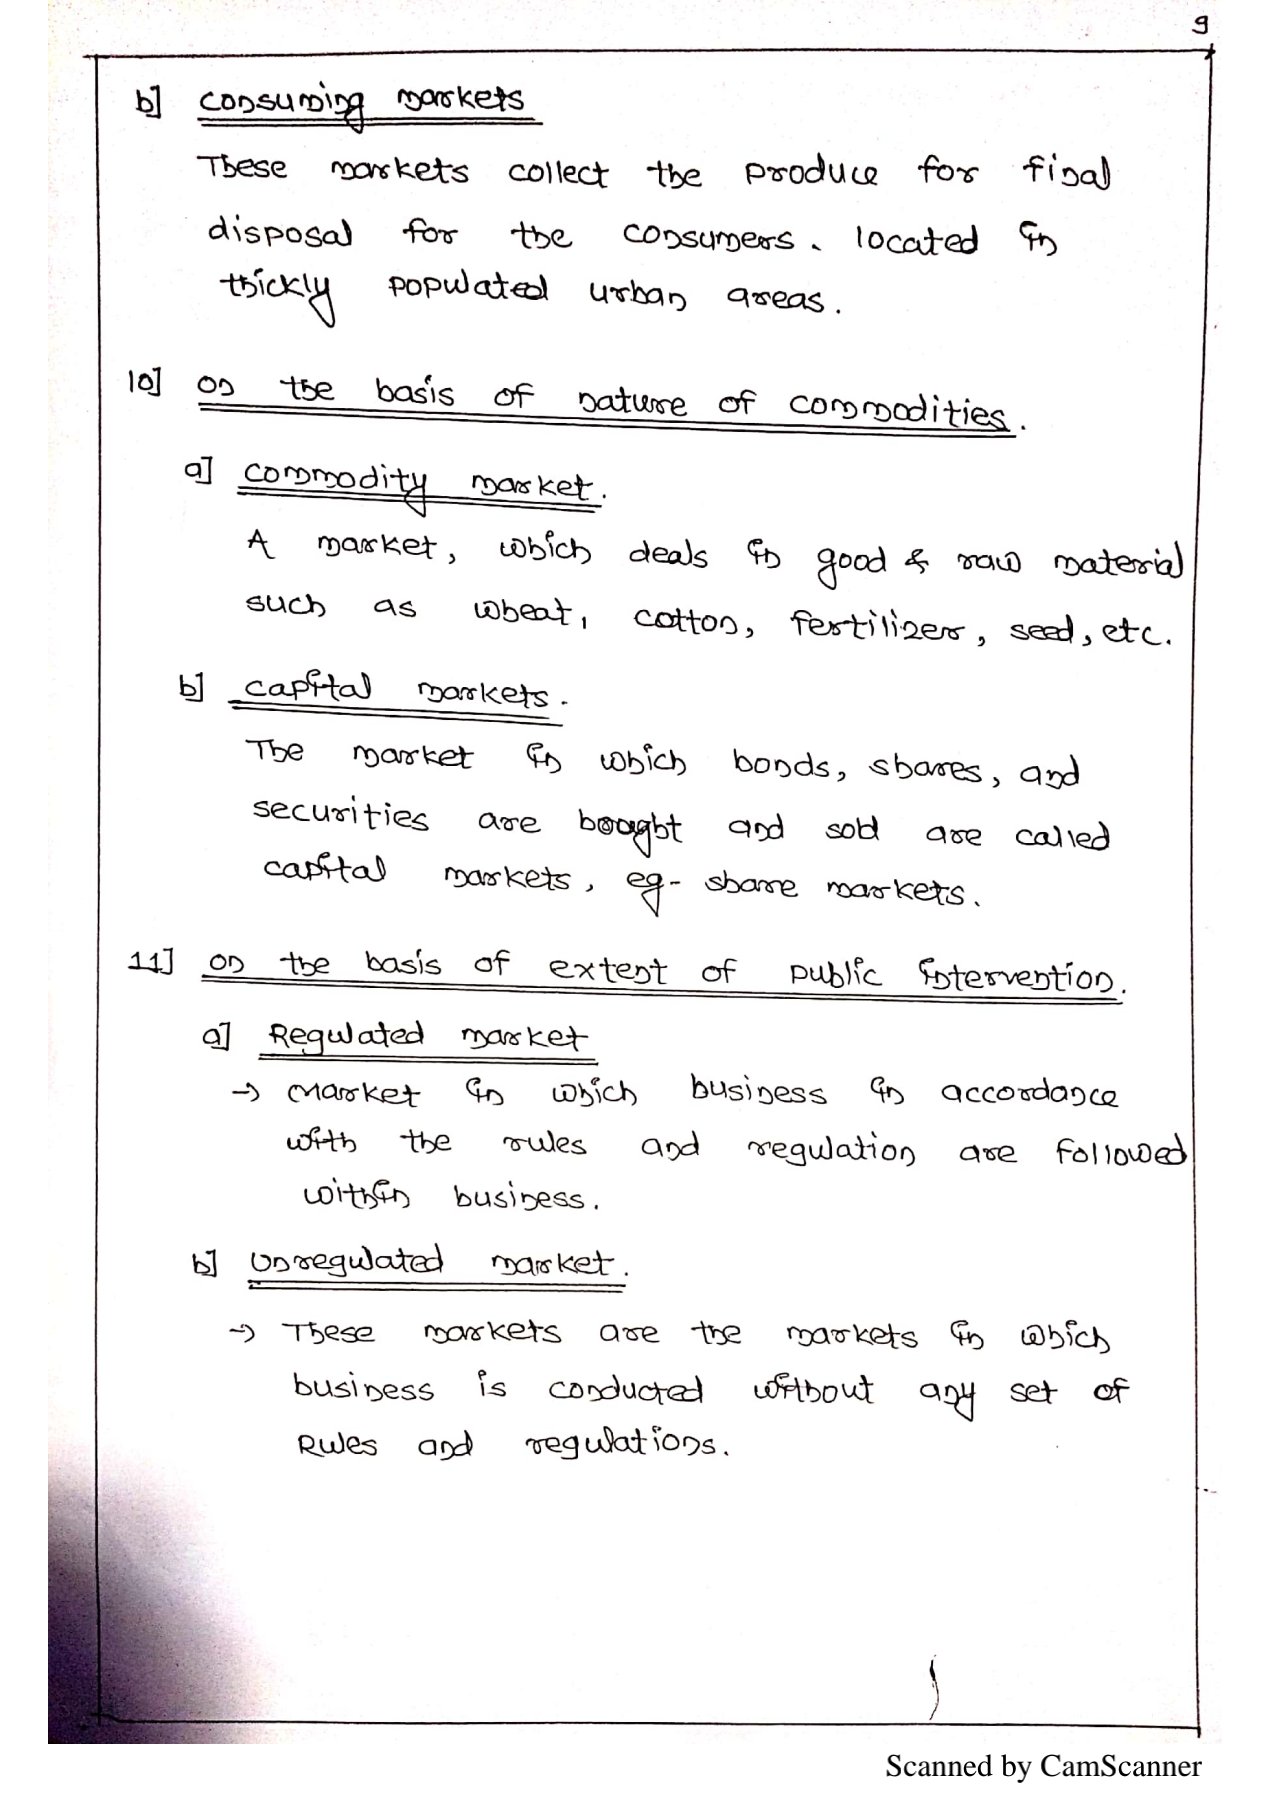 9
b] consuming markets
These markets collect the produce for final
disposal for the consumers. located in
thickly populated urban areas.
10] on the basis of nature of commodities.
a] commodity market.
A market, which deals in good & raw material
such as wheat, cotton, fertilizer, seed, etc.
b] capital markets.
The market in which bonds, shares, and
securities are bought and sold are called
capital markets, eg- share markets.
11] on the basis of extent of public intervention.
a] Regulated market
→ Market in which business in accordance
with the rules and regulation are followed
within business.
b] Unregulated market.
→ These markets are the markets in which
business is conducted without any set of
Rules and regulations.
Scanned by CamScanner